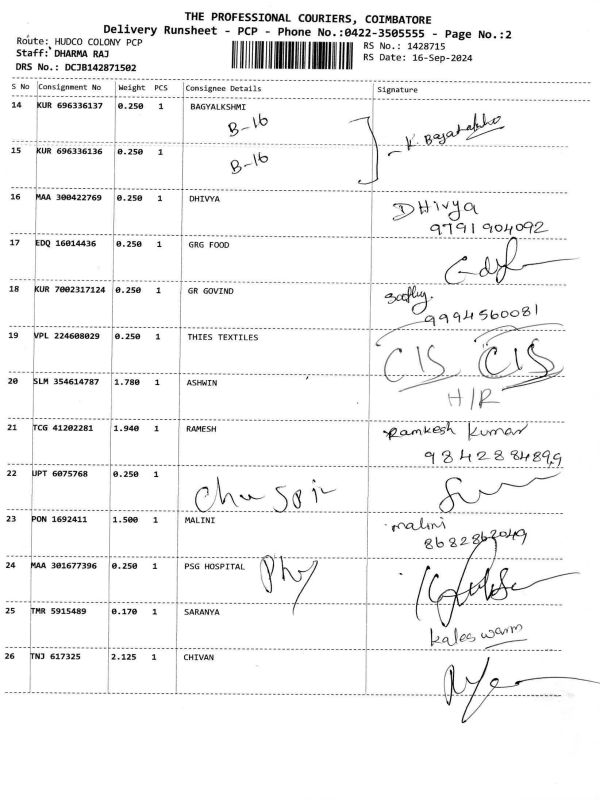 THE PROFESSIONAL COURIERS, COIMBATORE
Delivery Runsheet - PCP - Phone No.:0422-3505555 - Page No.:2
Route: HUDCO COLONY PCP
RS No.: 1428715
Staff: DHARMA RAJ
RS Date: 16-Sep-2024
DRS No.: DCJB142871502
S No Consignment No Weight PCS Consignee Details Signature
14 KUR 696336137 0.250 1 BAGYALKSHMI
B-16
15 KUR 696336136 0.250 1
B-16
16 MAA 300422769 0.250 1 DHIVYA DHivya
9791904092
17 EDQ 16014436 0.250 1 GRG FOOD
18 KUR 7002317124 0.250 1 GR GOVIND
9994560081
19 VPL 224608029 0.250 1 THIES TEXTILES CIS CIS
20 SLM 354614787 1.780 1 ASHWIN H/R
21 TCG 41202281 1.940 1 RAMESH Ramkesh Kumar
9842888489,9
22 UPT 6075768 0.250 1
23 PON 1692411 1.500 1 MALINI malini
8682862049
24 MAA 301677396 0.250 1 PSG HOSPITAL
25 TMR 5915489 0.170 1 SARANYA
26 TNJ 617325 2.125 1 CHIVAN